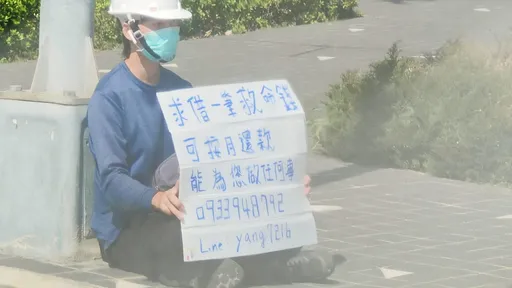 求借一筆救命錢
可按月還款
能為您做任何事
0933948742
Line yang7216